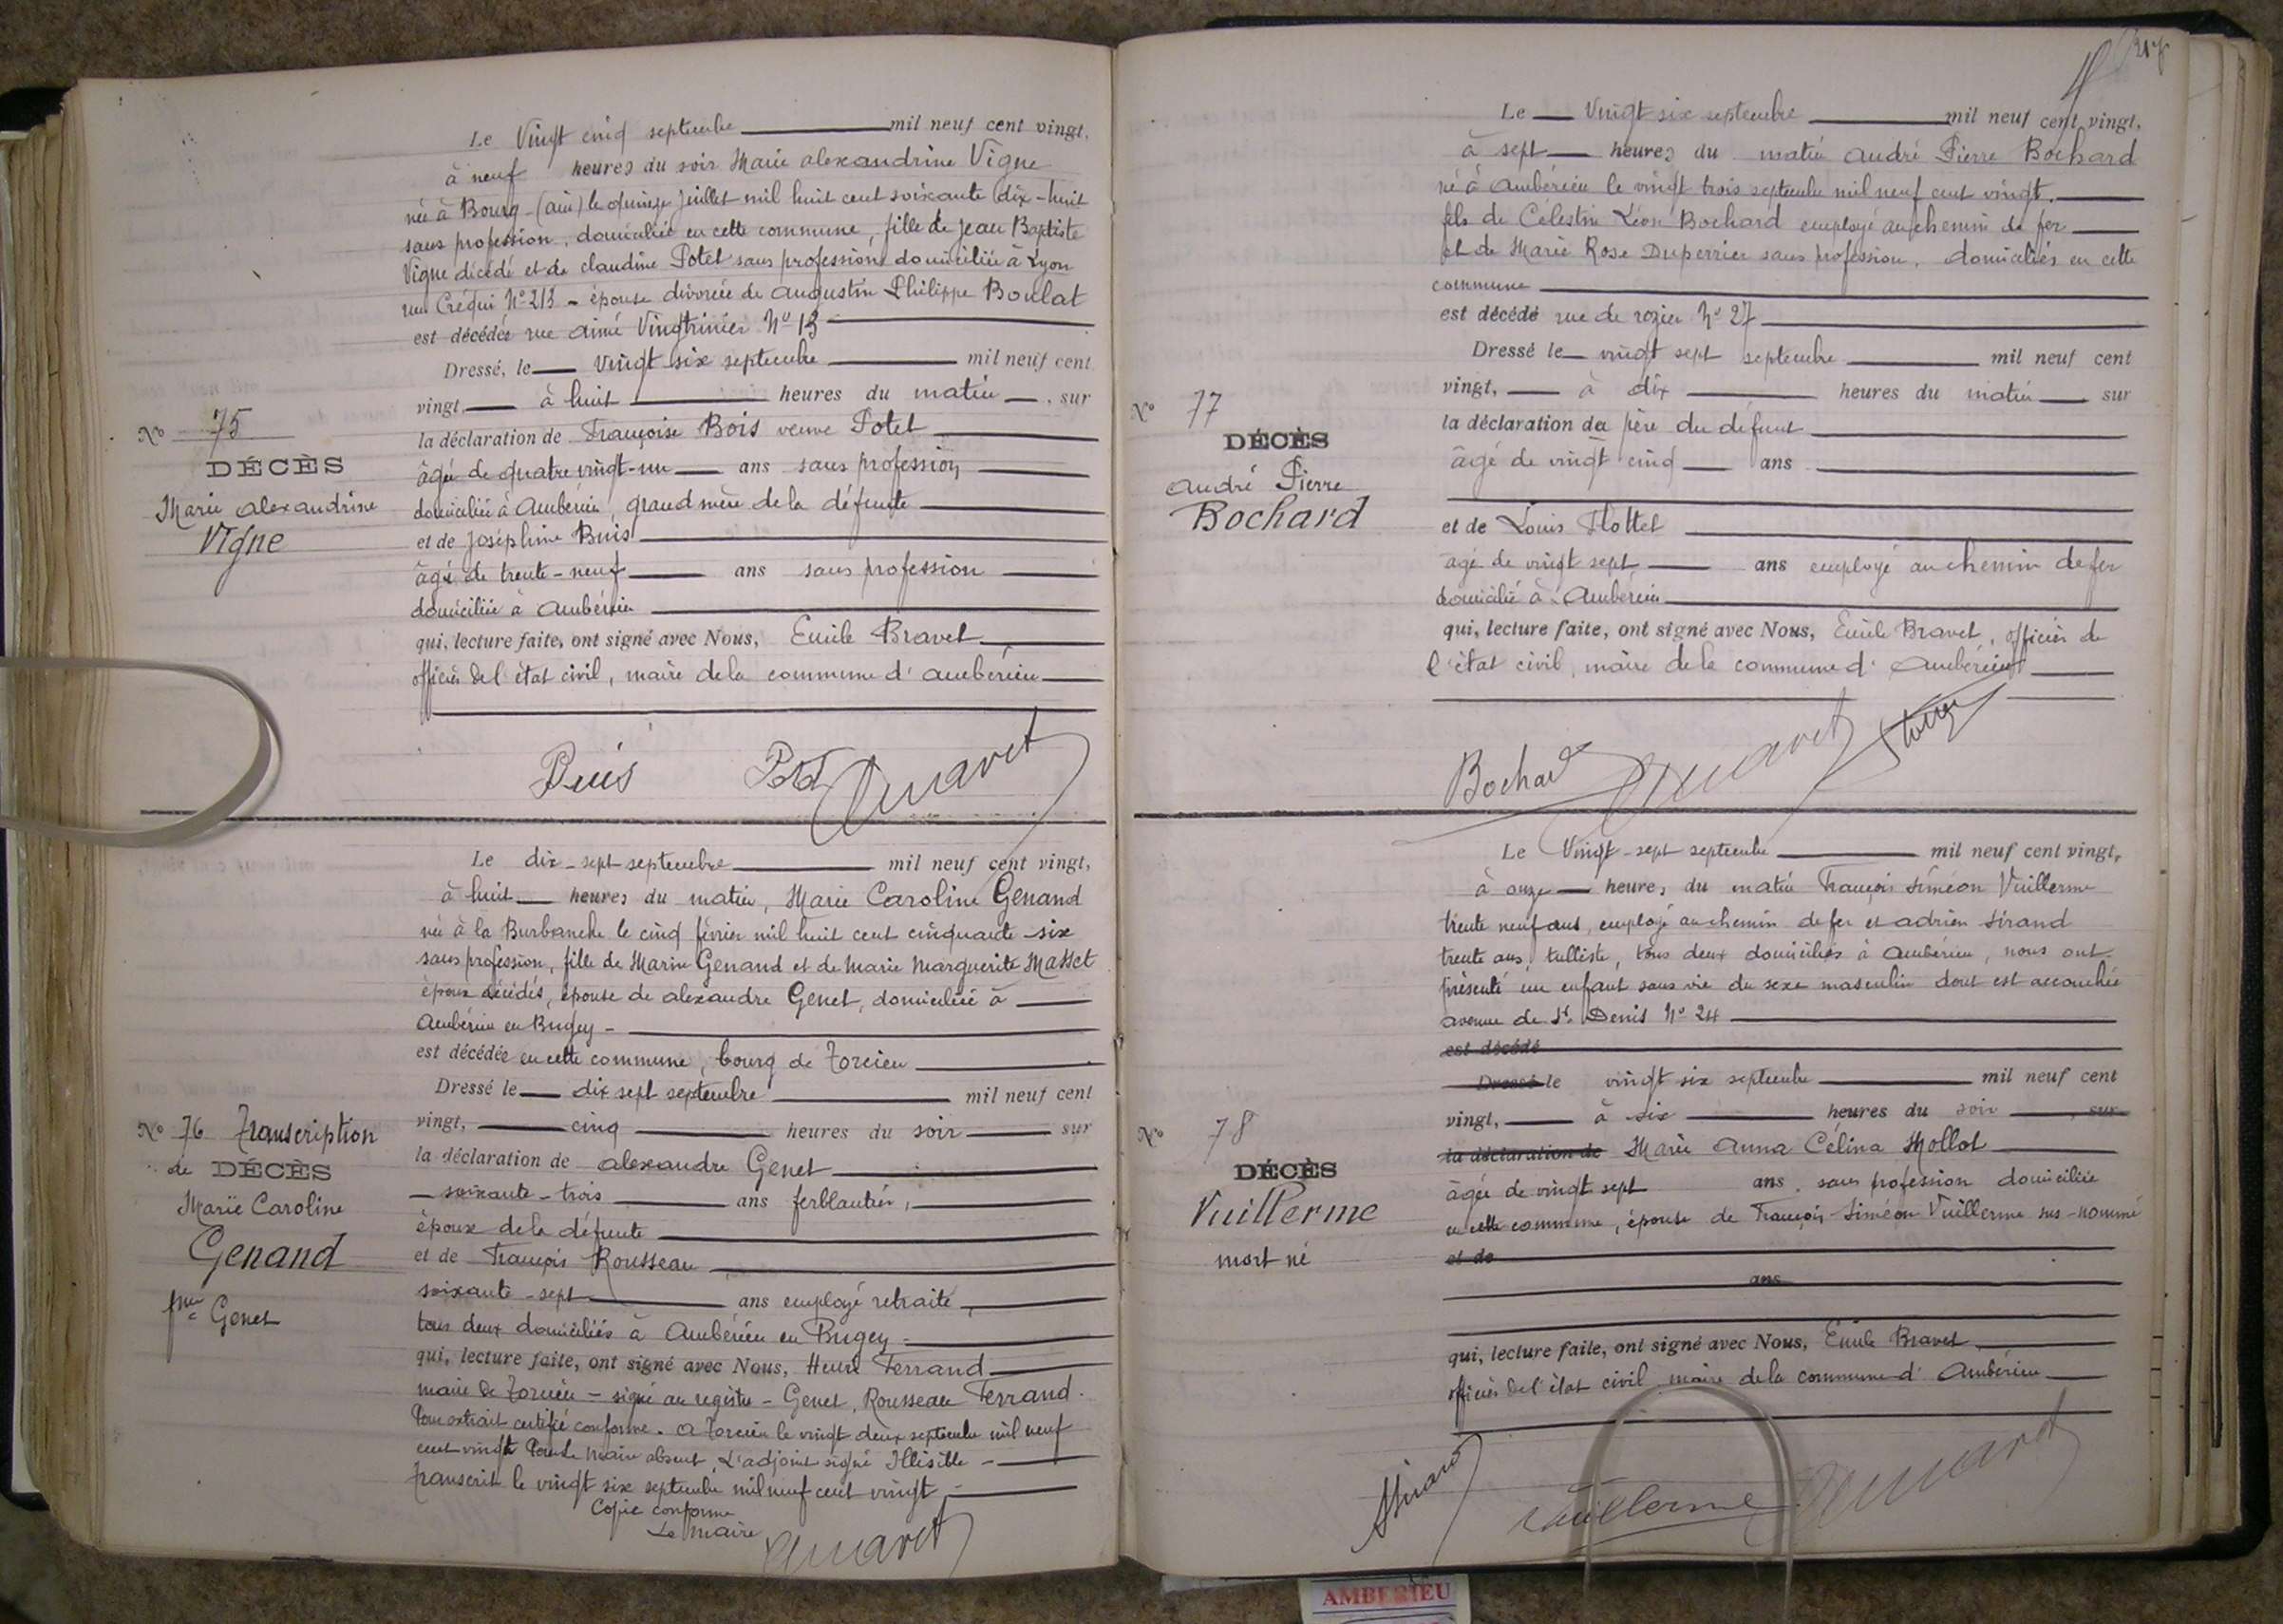 Le Vingt cinq septembre mil neuf cent vingt,
à neuf heures du soir Marie alexandrine Vigne
née à Bourg (ain) le quinze juillet mil huit cent soixante dix-huit
sans profession, domiciliée en cette commune, fille de Jean Baptiste
Vigne décédé et de claudine Potet sans profession domiciliée à Lyon
rue Créqui N° 213 - épouse divorcée de augustin Philippe Boulat
est décédée rue aimé Vingtrinier N° 13
Dressé, le vingt six septembre mil neuf cent
vingt, à huit heures du matin, sur
la déclaration de Françoise Bois veuve Potet
âgée de quatre vingt-un ans sans profession
domiciliée à Ambérieu, grand mère de la défunte
et de Joséphine Buis
âgée de trente-neuf ans sans profession
domiciliée à Ambérieu
qui, lecture faite, ont signé avec Nous, Emile Bravet
officier de l'état civil, maire de la commune d'Ambérieu
N° 75
DÉCÈS
Marie alexandrine
Vigne
Buis
Le dix-sept septembre mil neuf cent vingt,
à huit heures du matin, Marie Caroline Genand
née à la Burbanche le cinq février mil huit cent cinquante-six
sans profession, fille de Marin Genand et de Marie Marguerite Masset
époux décédés, épouse de alexandre Genet, domiciliée à
Ambérieu en Bugey -
est décédée en cette commune, bourg de Torcieu
Dressé le dix sept septembre mil neuf cent
vingt, cinq heures du soir sur
la déclaration de alexandre Genet
soixante-trois ans ferblantier,
époux de la défunte
et de François Rousseau
soixante-sept ans employé retraité,
tous deux domiciliés à Ambérieu en Bugey -
qui, lecture faite, ont signé avec Nous, Henri Ferrand
maire de Torcieu - signé au registre - Genet, Rousseau Ferrand.
Pour extrait certifié conforme. A Torcieu le vingt deux septembre mil neuf
cent vingt Pour le Maire absent, L'adjoint signé Illisible -
Transcrit le vingt six septembre mil neuf cent vingt -
Copie conforme
Le Maire
N° 76 Transcription
de DÉCÈS
Marie Caroline
Genand
fme Genet
Le Vingt six septembre mil neuf cent vingt,
à sept heures du matin andré Pierre Bochard
né à Ambérieu le vingt trois septembre mil neuf cent vingt,
fils de Célestin Léon Bochard employé au chemin de fer
et de Marie Rose Duperrier sans profession, domiciliés en cette
commune
est décédé rue de rozier N° 27
Dressé le vingt sept septembre mil neuf cent
vingt, à dix heures du matin sur
la déclaration du père du défunt
âgé de vingt cinq ans
et de Louis Flottet
âgé de vingt sept ans employé au chemin de fer
domicilié à Ambérieu
qui, lecture faite, ont signé avec Nous, Emile Bravet, officier de
l'état civil, maire de la commune d'Ambérieu
N° 77
DÉCÈS
andré Pierre
Bochard
Bochard
Le Vingt-sept septembre mil neuf cent vingt,
à onze heures du matin François Siméon Vuillerme
trente neuf ans, employé au chemin de fer et adrien Sirand
trente ans, tulliste, tous deux domiciliés à Ambérieu, nous ont
présenté un enfant sans vie du sexe masculin dont est accouchée
avenue de St Denis N° 24
est décédé
Dressé le vingt six septembre mil neuf cent
vingt, à six heures du soir, sur
la déclaration de Marie Anna Célina Mollot
âgée de vingt sept ans, sans profession domiciliée
en cette commune, épouse de François Siméon Vuillerme sus-nommé
et de
ans
qui, lecture faite, ont signé avec Nous, Emile Bravet
officier de l'état civil maire de la commune d'Ambérieu
N° 78
DÉCÈS
Vuillerme
mort né
Sirand
Vuillerme
AMBERIEU